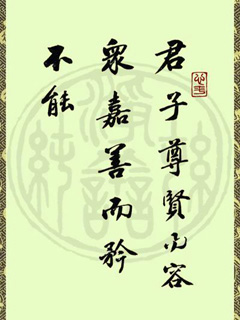 君子尊賢而容
眾嘉善而矜
不能